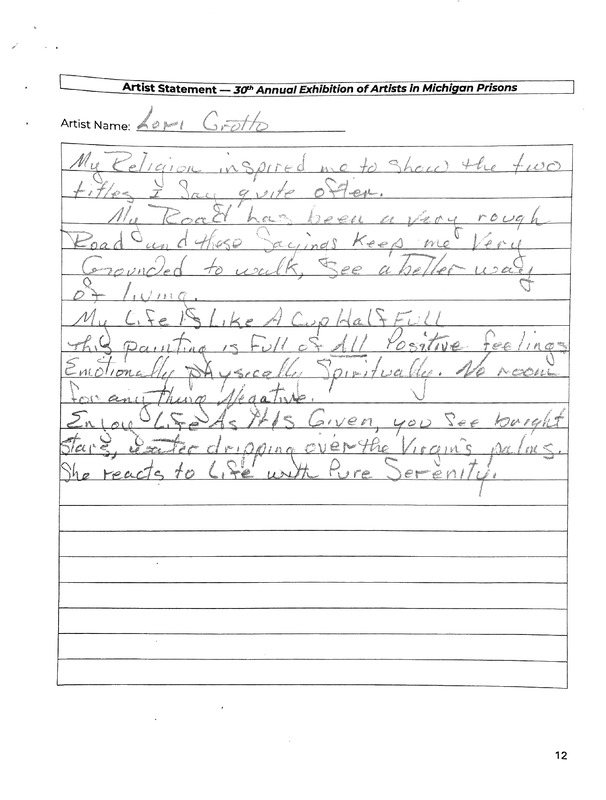 Artist Statement — 30th Annual Exhibition of Artists in Michigan Prisons
Artist Name: Lori Grotto
My Religion inspired me to show the two
titles I Say quite often.
My Road has been a very rough
Road und these Sayings Keep me Very
Grounded to walk, See a better way
of living.
My Life Is Like A Cup Half Full
this painting is Full of All Positive feelings
Emotionally physically Spiritually. No room
for any thing Negative.
Enjoy Life As It Is Given, you See bright
stars, water dripping over the Virgin's palms.
She reacts to Life with Pure Serenity.
12